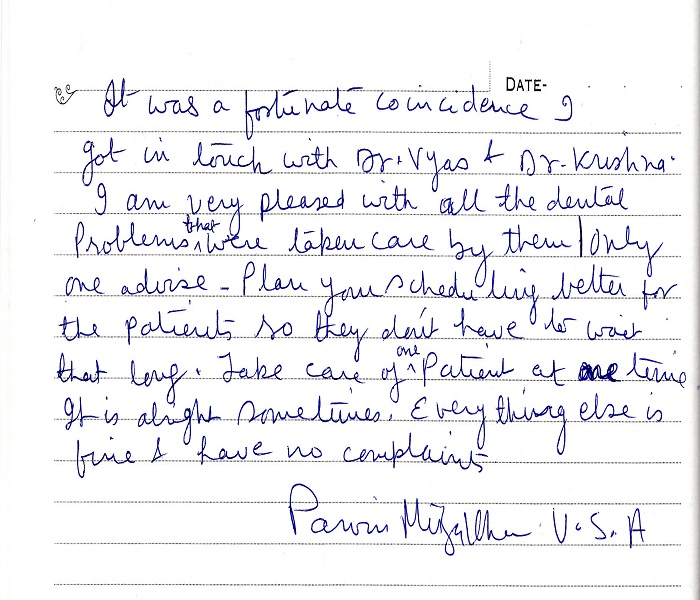 DATE-
It was a fortunate coincidence I
got in touch with Dr. Vyas & Dr. Krishna.
I am very pleased with all the dental
Problems that were taken care by them | Only
one advise - Plan your scheduling better for
the patients so they don't have to wait
that long. Take care of one Patient at one time
It is alright sometimes. Everything else is
fine & have no complaints
Parvin U.S.A